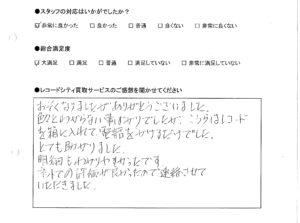 ●スタッフの対応はいかがでしたか？
☑非常に良かった　□良かった　□普通　□良くない　□非常に良くない
●総合満足度
☑大満足　□満足　□普通　□満足していない　□非常に満足していない
●レコードシティ買取サービスのご感想を聞かせてください
おそくなりましたがありがとうございました。
わからない事ばかりでしたが、こちらはレコード
を箱に入れて、電話をかけるだけでした。
とても助かりました。
明細もわかりやすかったです。
ネットでの評価が良かったので連絡させて
いただきました。